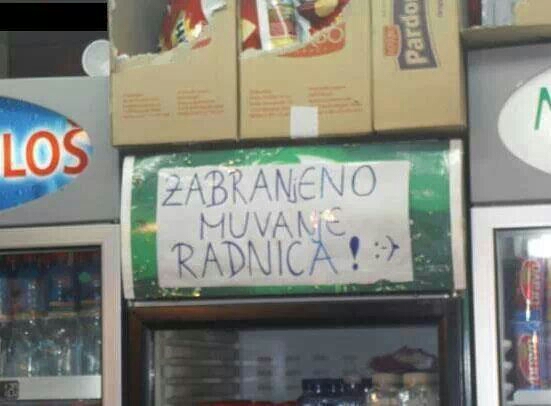 Pardon
LOS
ZABRANJENO
MUVANJE
RADNICA! :-)